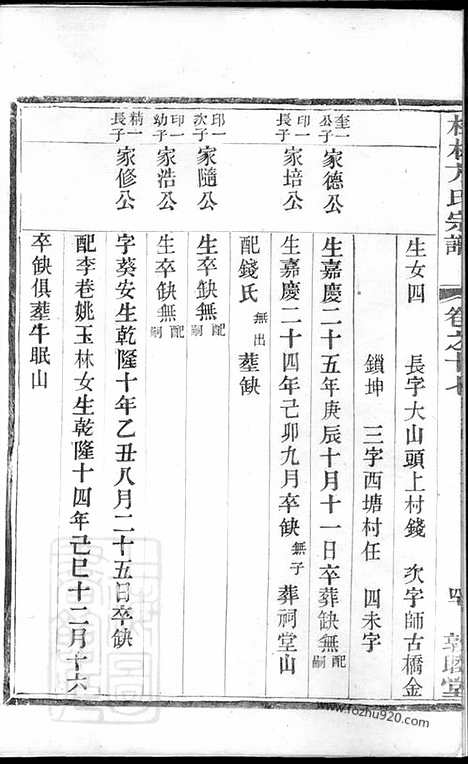 方氏宗譜
卷之十七
四
敦睦堂
生女四　長字大山頭上村錢　次字師古橋金
鎖坤　三字西塘村任　四未字
奎一公子　家德公　生嘉慶二十五年庚辰十月十一日卒葬缺無配嗣
印一長子　家培公　生嘉慶二十四年己卯九月卒缺無子　葬祠堂山
配錢氏無出　葬缺
印一次子　家隨公　生卒缺無配嗣
印一幼子　家浩公　生卒缺無配嗣
精一長子　家修公　字葵安生乾隆十年乙丑八月二十五日卒缺
配李巷姚玉林女生乾隆十四年己巳十二月十六
卒缺俱葬牛眠山
www.fozhu920.com